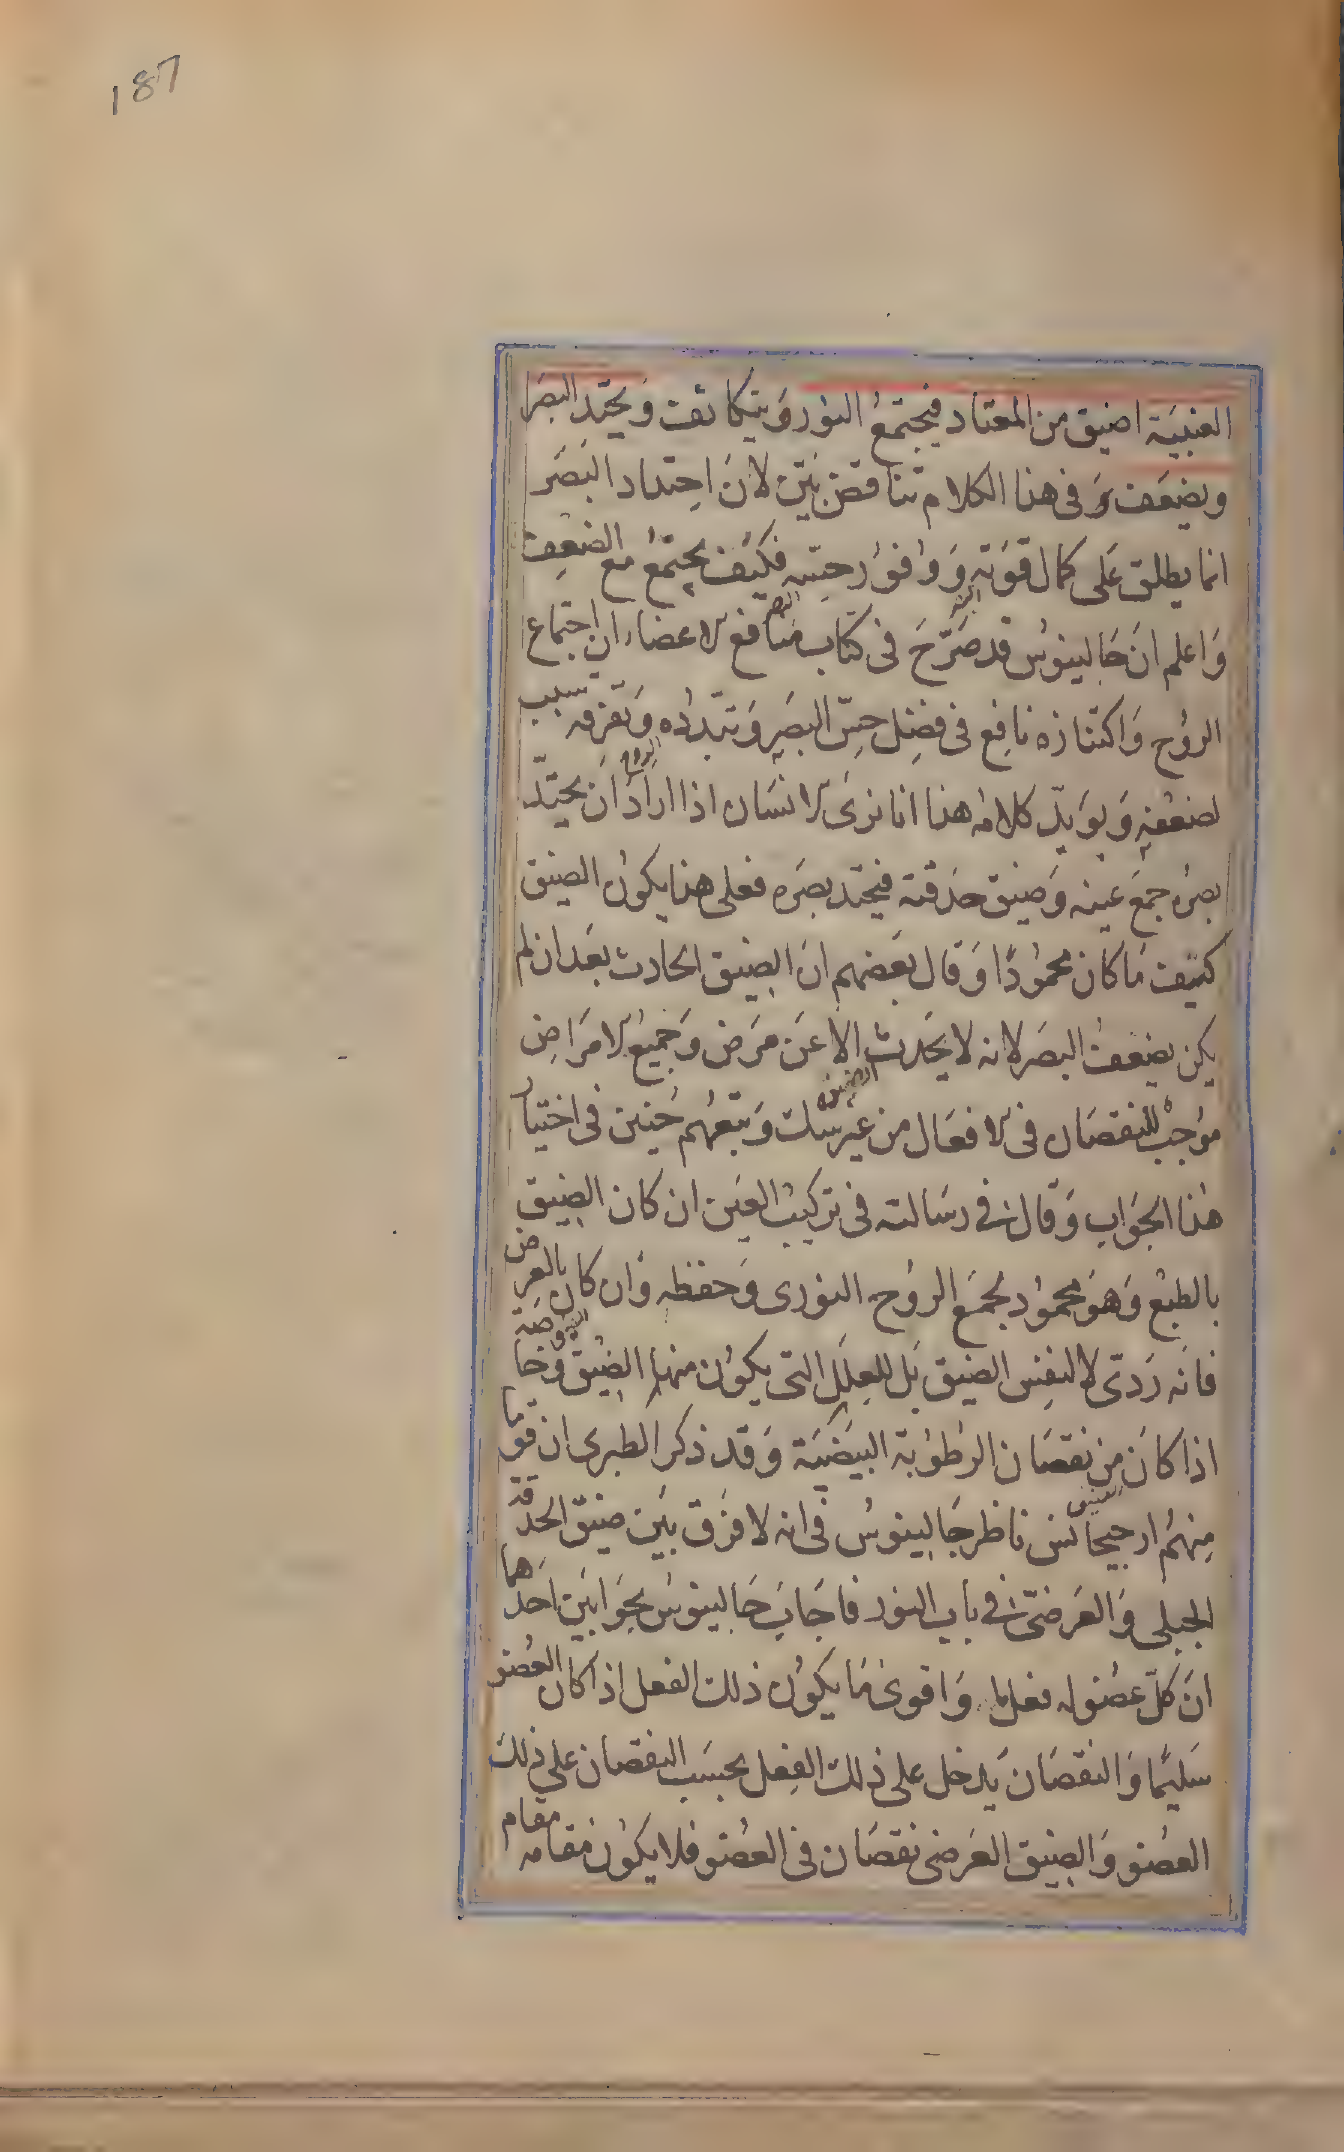 187
العنبية اضيق من المعتاد فيجتمع النور ويتكاثف ويحتد البصر
ويضعف وفى هذا الكلام تناقض بيّن لان احتداد البصر
انما يطلق على كمال قوته ووفور حسه فكيف يجتمع مع الضعف
واعلم ان جالينوس قد صرّح فى كتاب منافع الاعضاء ان اجتماع
الروح واكتنازه نافع فى فضل حسّ البصر وتبدده وتفرقه سبب
لضعفه ويوايد كلامه هذا انا نرى الانسان اذا اراد ان يحتدّ
بصره جمع عينه وضيق حدقته فيحتد بصره فعلى هذا يكون الضيق
كيف ما كان محمودًا وقال بعضهم ان الضيق الحادث بعد ان لم
يكن يضعف البصر لانه لا يحدث الا عن مرض وجميع الامراض
موجب للنقصان فى الافعال من غير شك وتبعهم حنين فى اختيار
هذا الجواب وقال فى رسالته فى تركيب العين ان كان الضيق
بالطبع وهو محمود لجمع الروح النورى وحفظه وان كان بالعرض
فانه ردّى لا لنفس الضيق بل للعلل التى يكون منها الضيق وخاصة
اذا كان من نقصان الرطوبة البيضية وقد ذكر الطبرى ان قوما
منهم ارجيجانس ناظر جالينوس فى انه لا فرق بين ضيق الحدقة
الجبلى والعرضىّ فى باب النور فاجاب جالينوس بجوابين احدهما
ان كلّ عضو له فعل ما واقوى ما يكون ذلك الفعل اذا كان العضو
سليمًا والنقصان يدخل على ذلك الفعل بحسب النقصان على ذلك
العضو والضيق العرضى نقصان فى العضو فلا يكون مقامه مقام